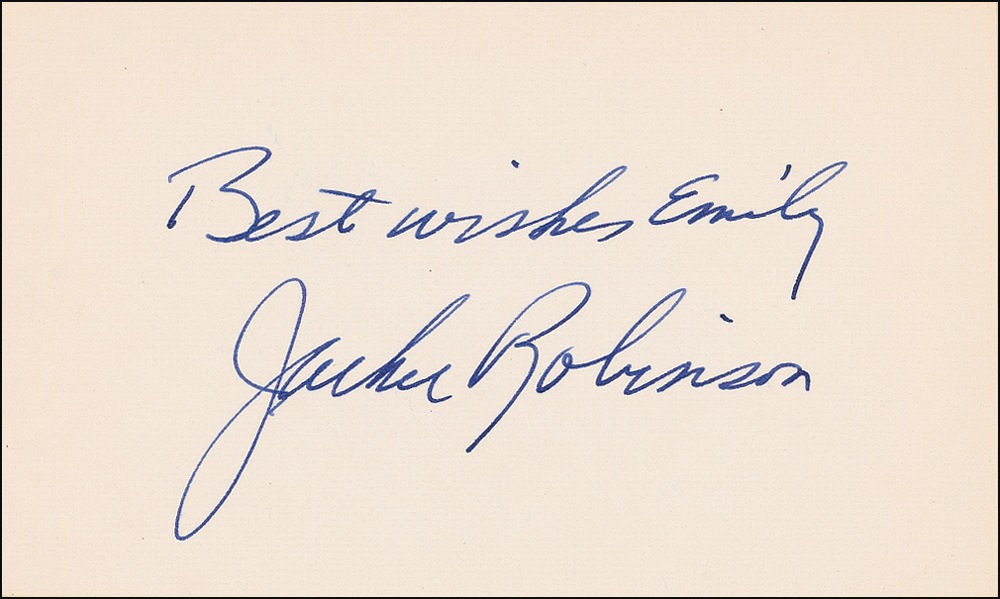 Best wishes Emily
Jackie Robinson